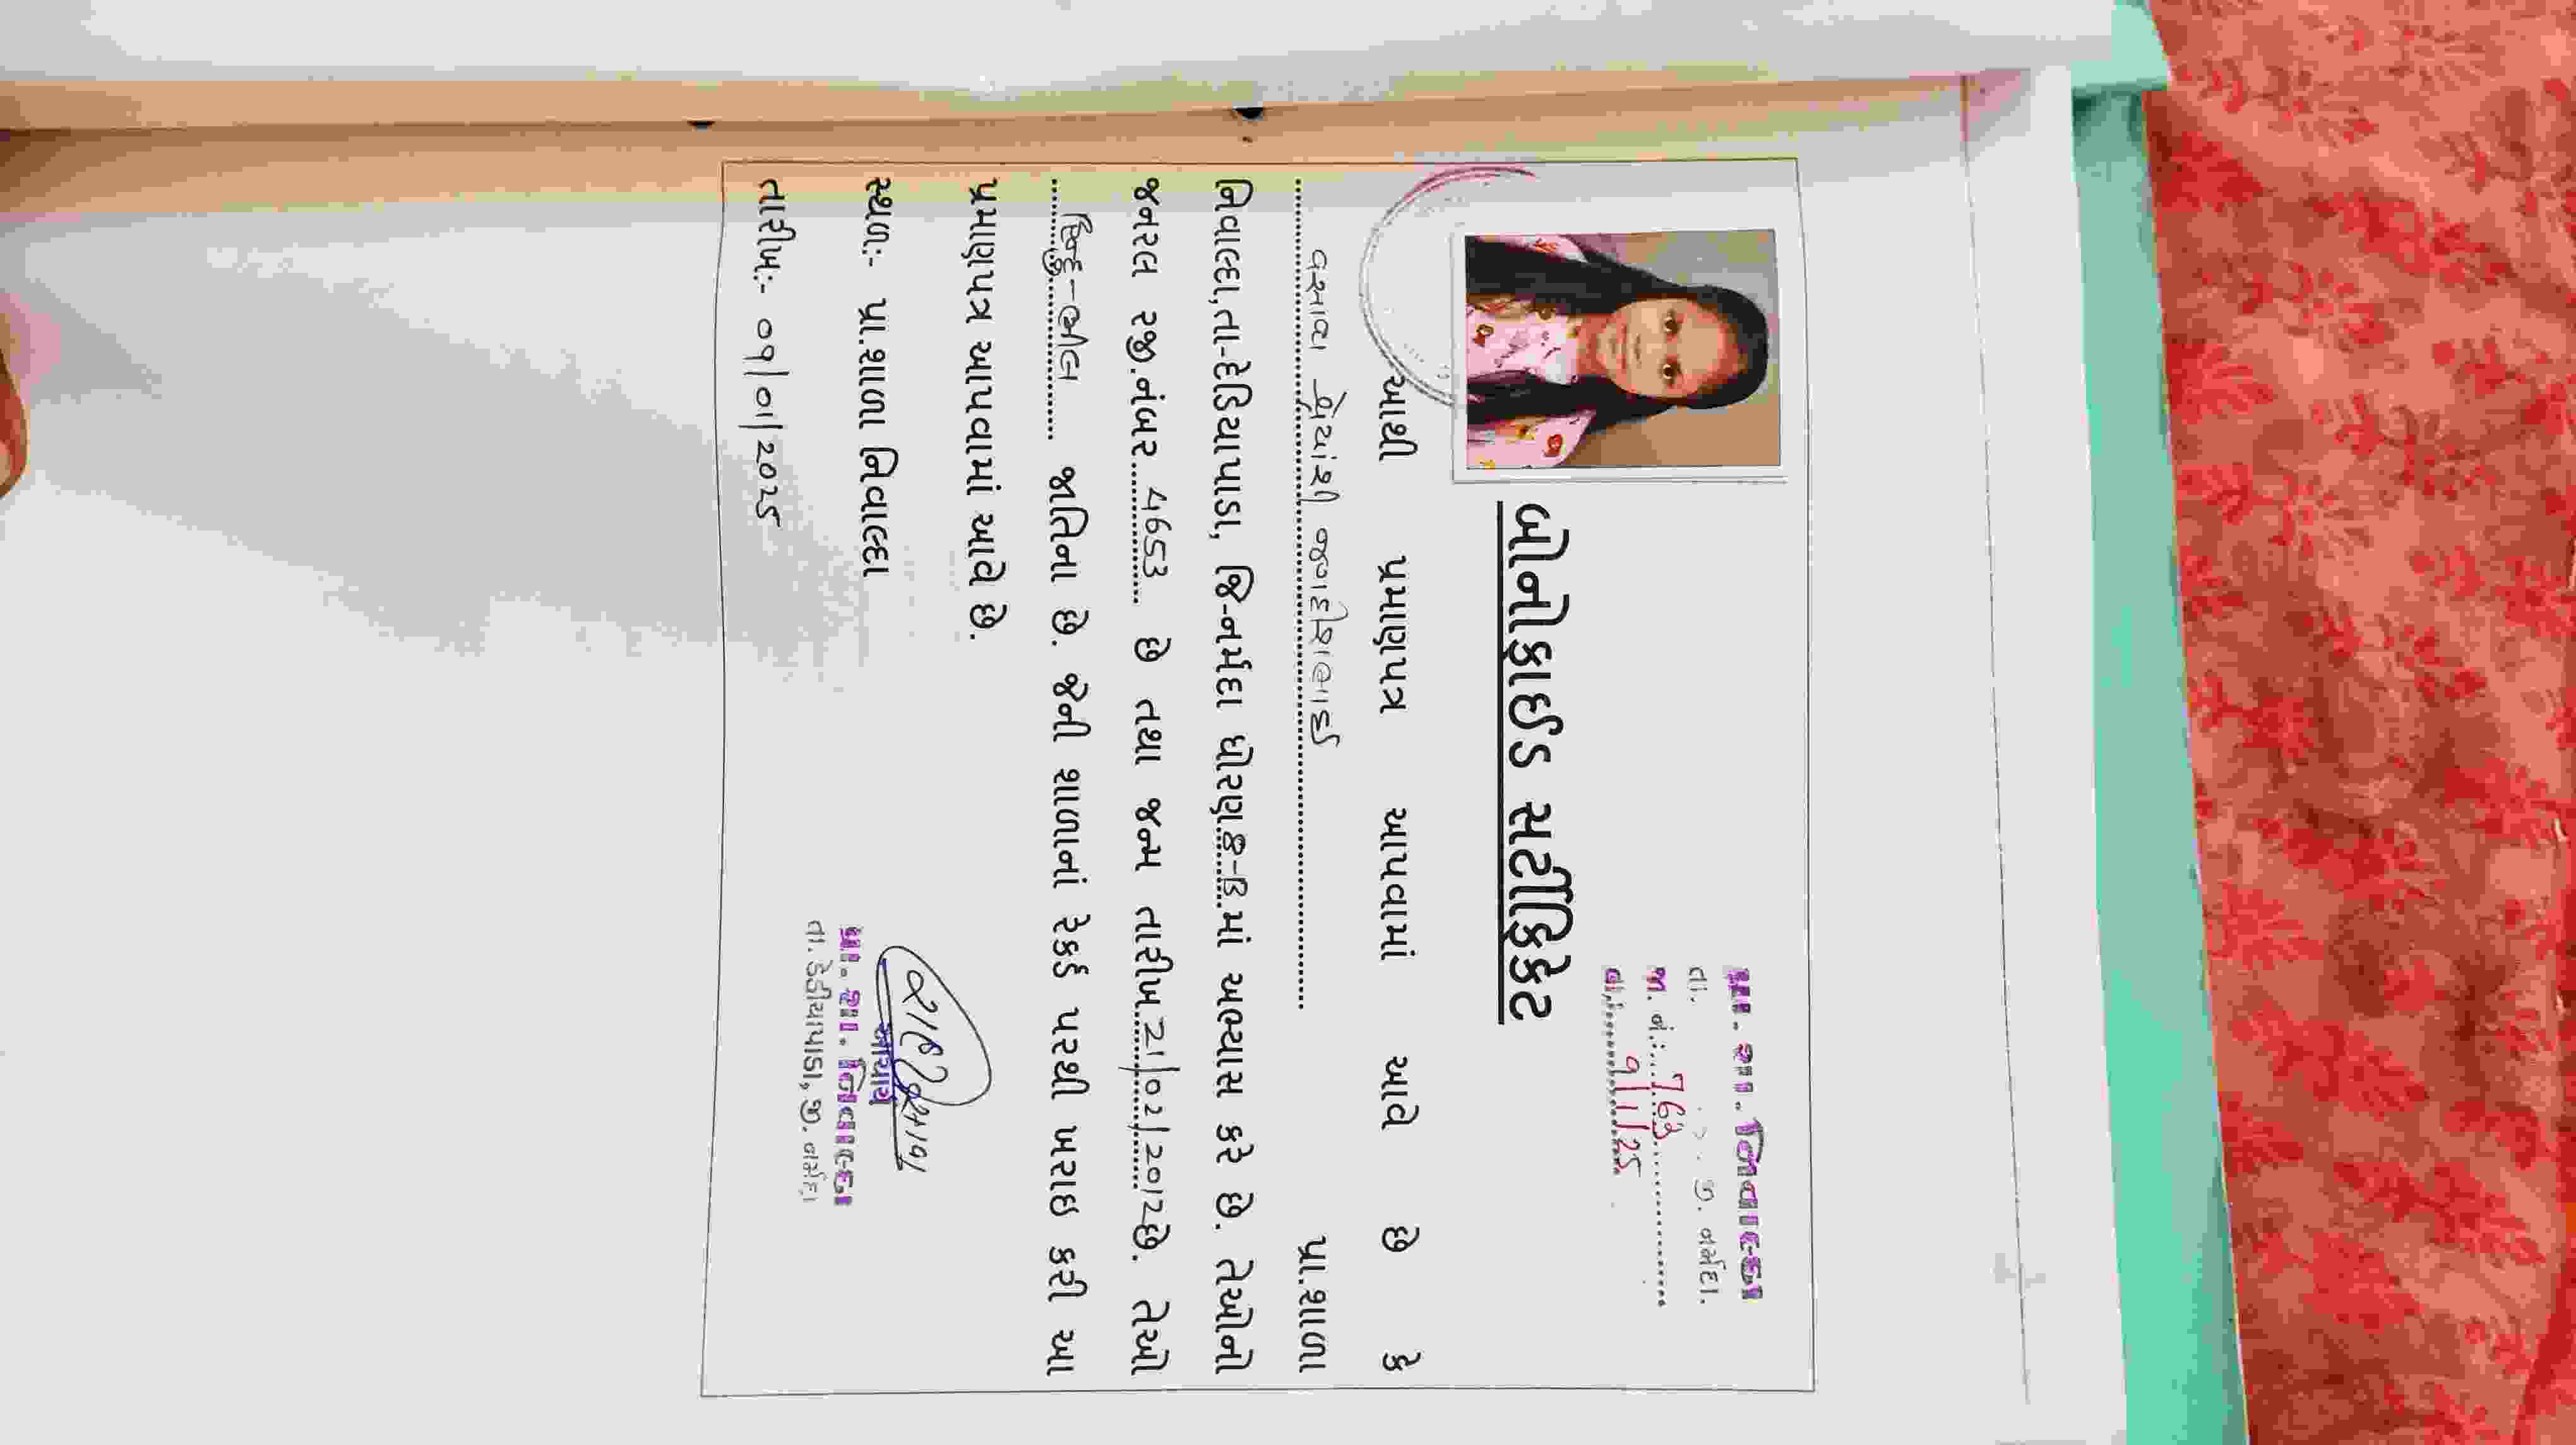 પ્રા. શા. નિવાલ્દા
તા. જી. નર્મદા.
જા. નં.:.... 763
તા. 9/1/25
બોનોફાઈડ સર્ટીફિકેટ
આથી પ્રમાણપત્ર આપવામાં આવે છે કે
વસાવા શ્રેયાંશી જગદીશભાઈ પ્રા.શાળા
નિવાલ્દા,તા-દેડિયાપાડા, જિ-નર્મદા ધોરણ માં અભ્યાસ કરે છે. તેઓનો
જનરલ રજી.નંબર 4653 છે તથા જન્મ તારીખ 21/02/2012 છે. તેઓ
હિન્દુ-ભીલ જાતિના છે. જેની શાળાનાં રેકર્ડ પરથી ખરાઇ કરી આ
પ્રમાણપત્ર આપવામાં આવે છે.
સ્થળ:- પ્રા.શાળા નિવાલ્દા
તારીખ:- ૦૧/૦૧/2025
આચાર્ય
પ્રા. શા. નિવાલ્દા
તા. ડેડીયાપાડા, જી. નર્મદા